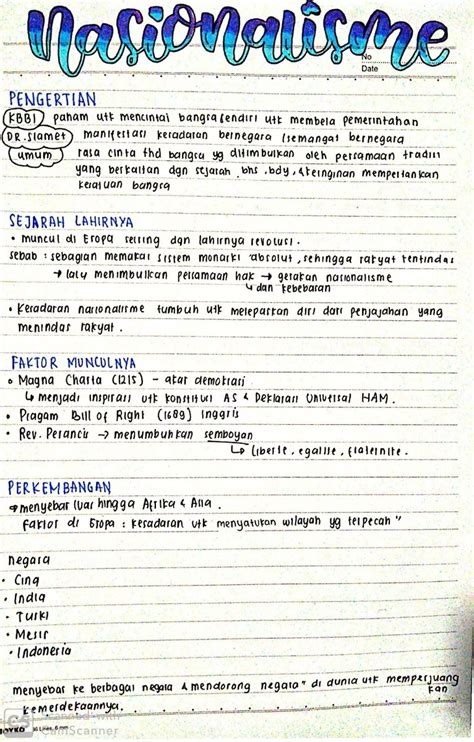 Nasionalisme
No
Date
PENGERTIAN
KBBI paham utk mencintai bangsa sendiri utk membela pemerintahan
DR. Slamet manifestasi kesadaran bernegara / semangat bernegara
umum rasa cinta thd bangsa yg ditimbulkan oleh persamaan tradisi
yang berkaitan dgn sejarah, bhs, bdy, & keinginan mempertankan
kesatuan bangsa
SEJARAH LAHIRNYA
• muncul di Eropa seiring dgn lahirnya revolusi.
sebab : sebagian memakai sistem monarki absolut, sehingga rakyat tertindas
→ lalu menimbulkan persamaan hak → gerakan nasionalisme
↳ dan kebebasan
• Kesadaran nasionalisme tumbuh utk melepaskan diri dari penjajahan yang
menindas rakyat.
FAKTOR MUNCULNYA
• Magna Charta (1215) – akar demokrasi
↳ menjadi inspirasi utk konstitusi AS & Deklarasi Universal HAM.
• Piagam Bill of Right (1689) Inggris
• Rev. Perancis → menumbuhkan semboyan
↳ Liberte, egalite, fraternite.
PERKEMBANGAN
→ menyebar luas hingga Afrika & Asia.
Faktor di Eropa : kesadaran utk menyatukan wilayah yg terpecah"
negara
• Cina
• India
• Turki
• Mesir
• Indonesia
menyebar ke berbagai negara & mendorong negara" di dunia utk memperjuang
kan
kemerdekaannya.
CS Scanned with
CamScanner